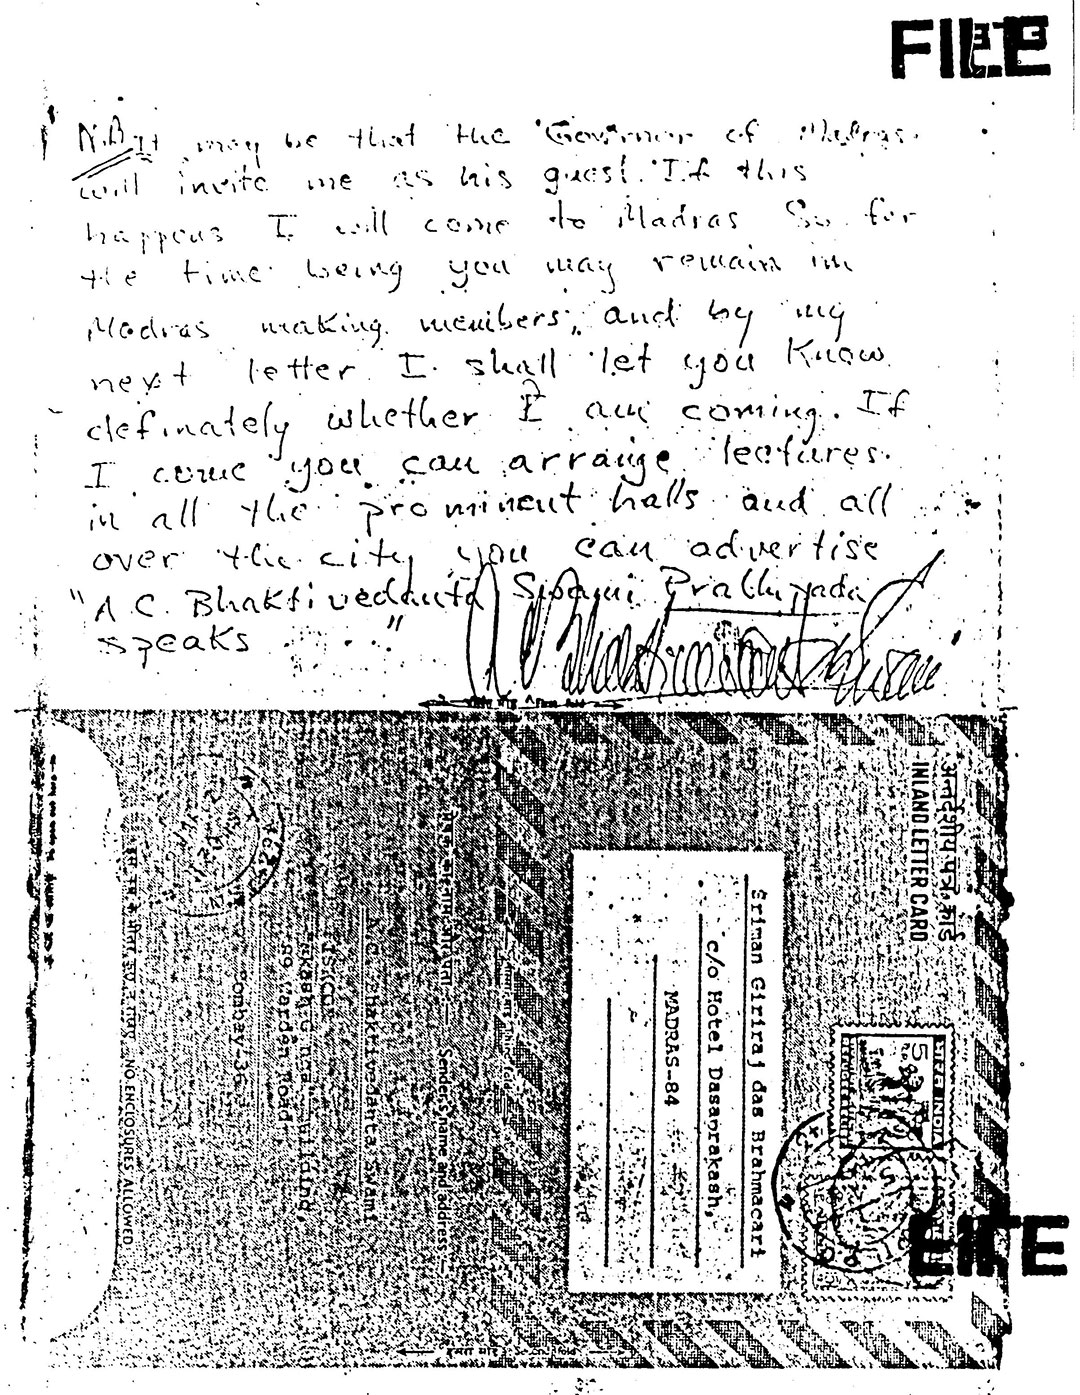 FILE
N.B. It may be that the Governor of Madras
will invite me as his guest. If this
happens I will come to Madras So for
the time being you may remain in
Madras making members, and by my
next letter I shall let you know
definately whether I am coming. If
I come you can arrange lectures
in all the prominent halls and all
over the city you can advertise
"A.C. Bhaktivedanta Swami Prabhupada
speaks . . ."
अन्तर्देशीय पत्र कार्ड
INLAND LETTER CARD
INDIA
Sriman Giriraj das Brahmacari
c/o Hotel Dasaprakash,
MADRAS-84
Second fold
Sender's name and address
A.C. Bhaktivedanta Swami
ISKCON
Akash Ganga Building,
89 Warden Road
Bombay-36
NO ENCLOSURES ALLOWED
To open cut here
FILE